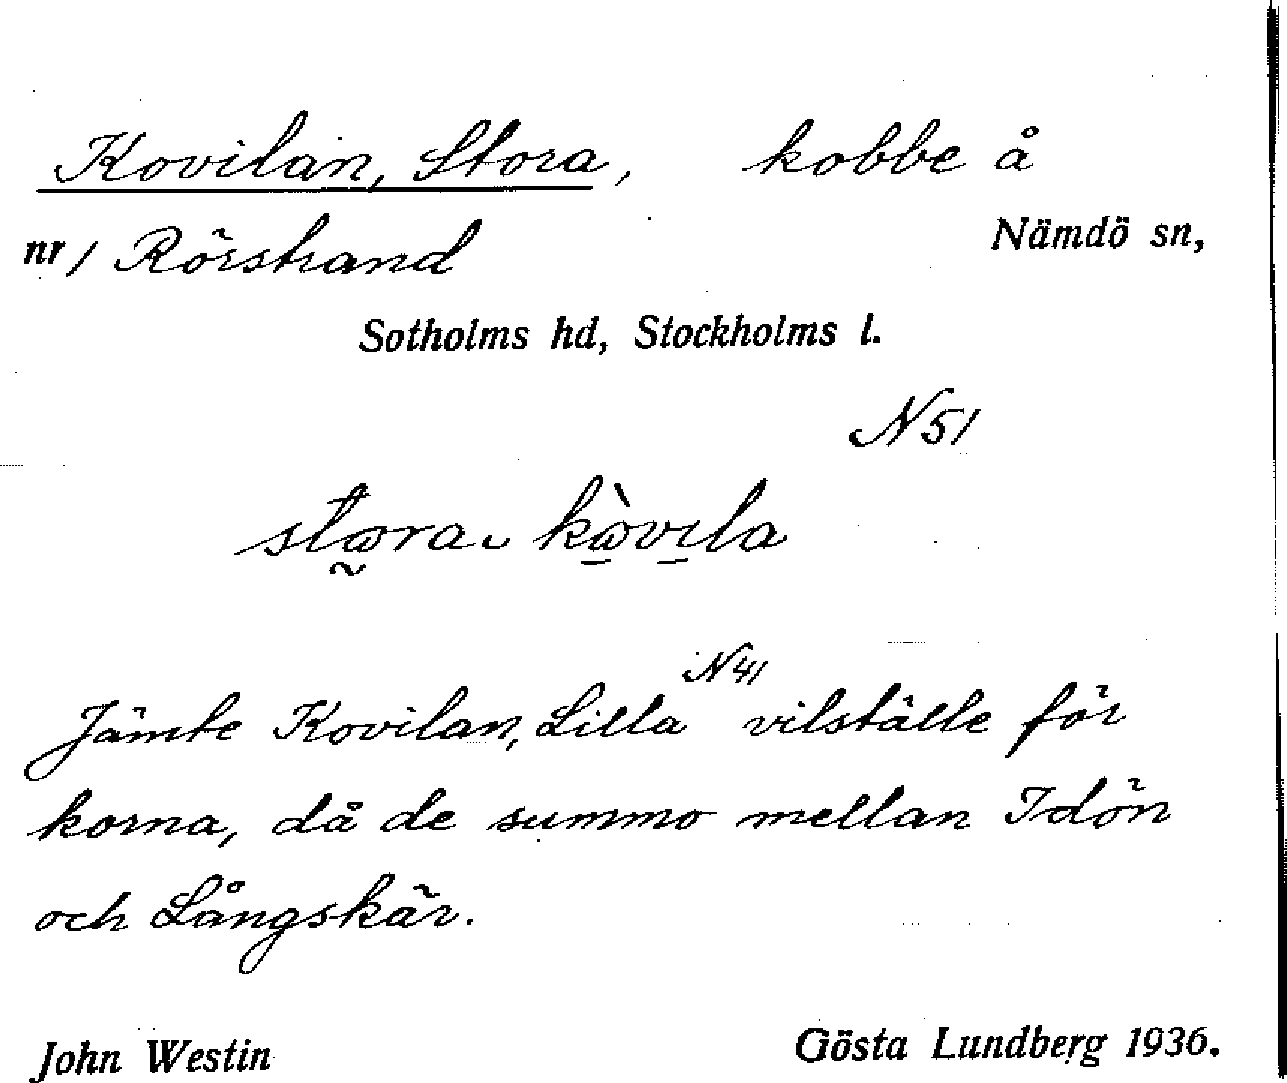 Kovilan, Stora, kobbe å
nr 1 Rörstrand Nämdö sn,
Sotholms hd, Stockholms l.
N 51
stωra kὼvιla
N 41
Jämte Kovilan, Lilla vilställe för
korna, då de summo mellan Idön
och Långskär.
John Westin Gösta Lundberg 1936.